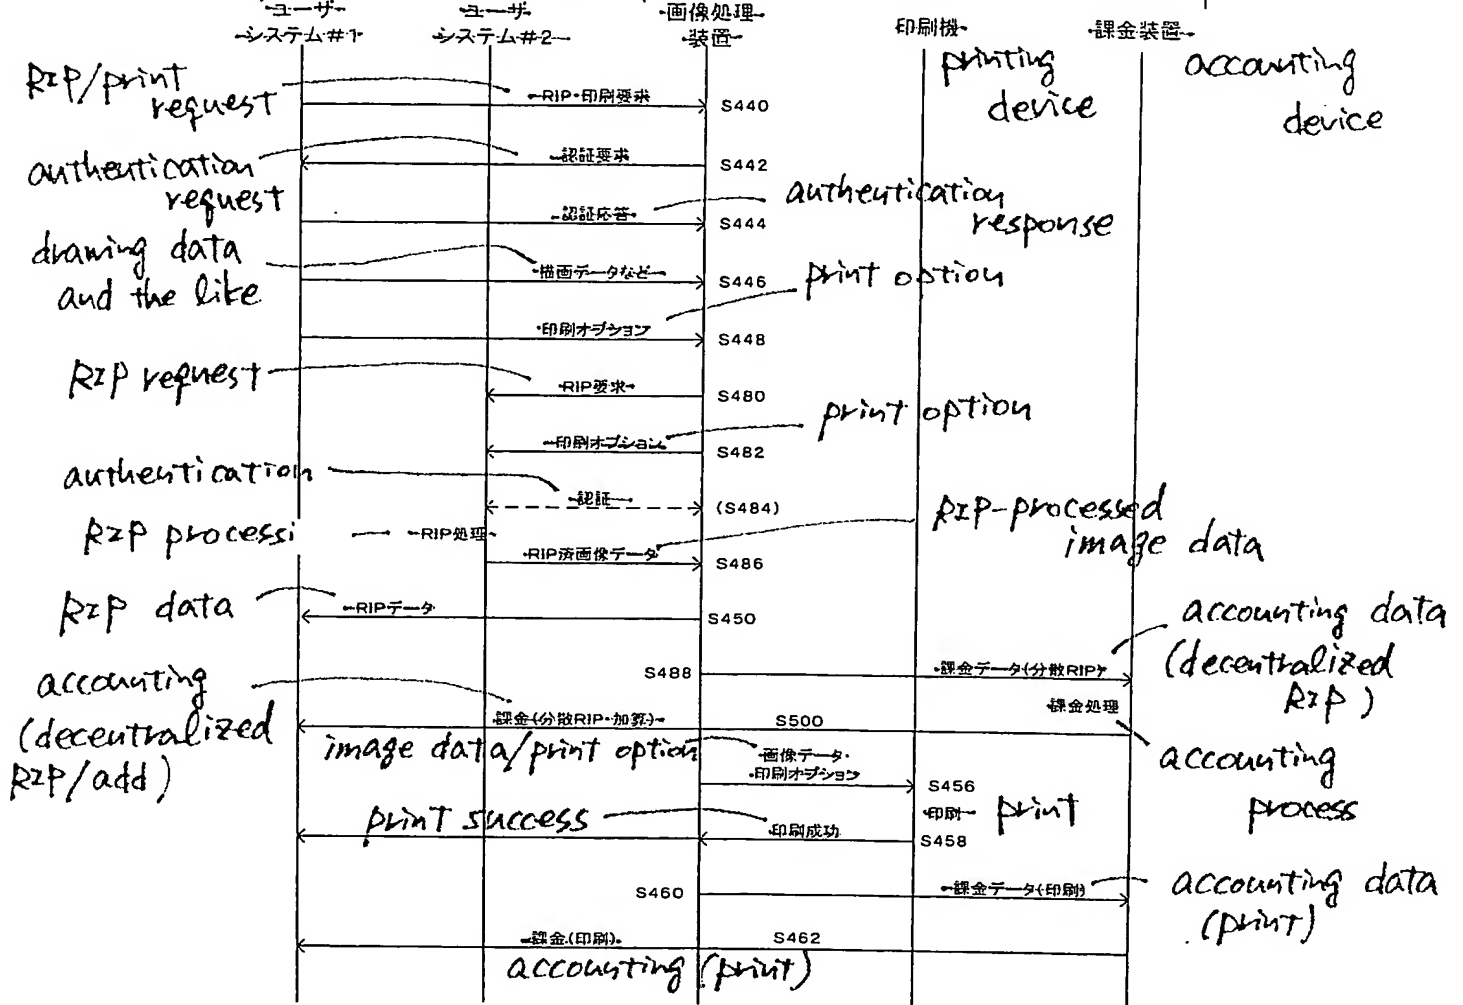 ユーザ
システム#1
ユーザ
システム#2
画像処理
装置
印刷機
課金装置
printing
device
accounting
device
RIP/print
request
RIP・印刷要求
S440
authentication
request
認証要求
S442
認証応答
S444
authentication
response
drawing data
and the like
描画データなど
S446
print option
印刷オプション
S448
RIP request
RIP要求
S480
print option
印刷オプション
S482
authentication
認証
(S484)
RIP processi
RIP処理
RIP-processed
image data
RIP済画像データ
S486
RIP data
RIPデータ
S450
accounting data
(decentralized
RIP)
S488
課金データ(分散RIP)
accounting
(decentralized
RIP/add)
課金処理
課金(分散RIP・加算)
S500
accounting
process
image data/print option
画像データ・
印刷オプション
S456
印刷
print
print success
印刷成功
S458
S460
課金データ(印刷)
accounting data
(print)
課金(印刷)
S462
accounting (print)